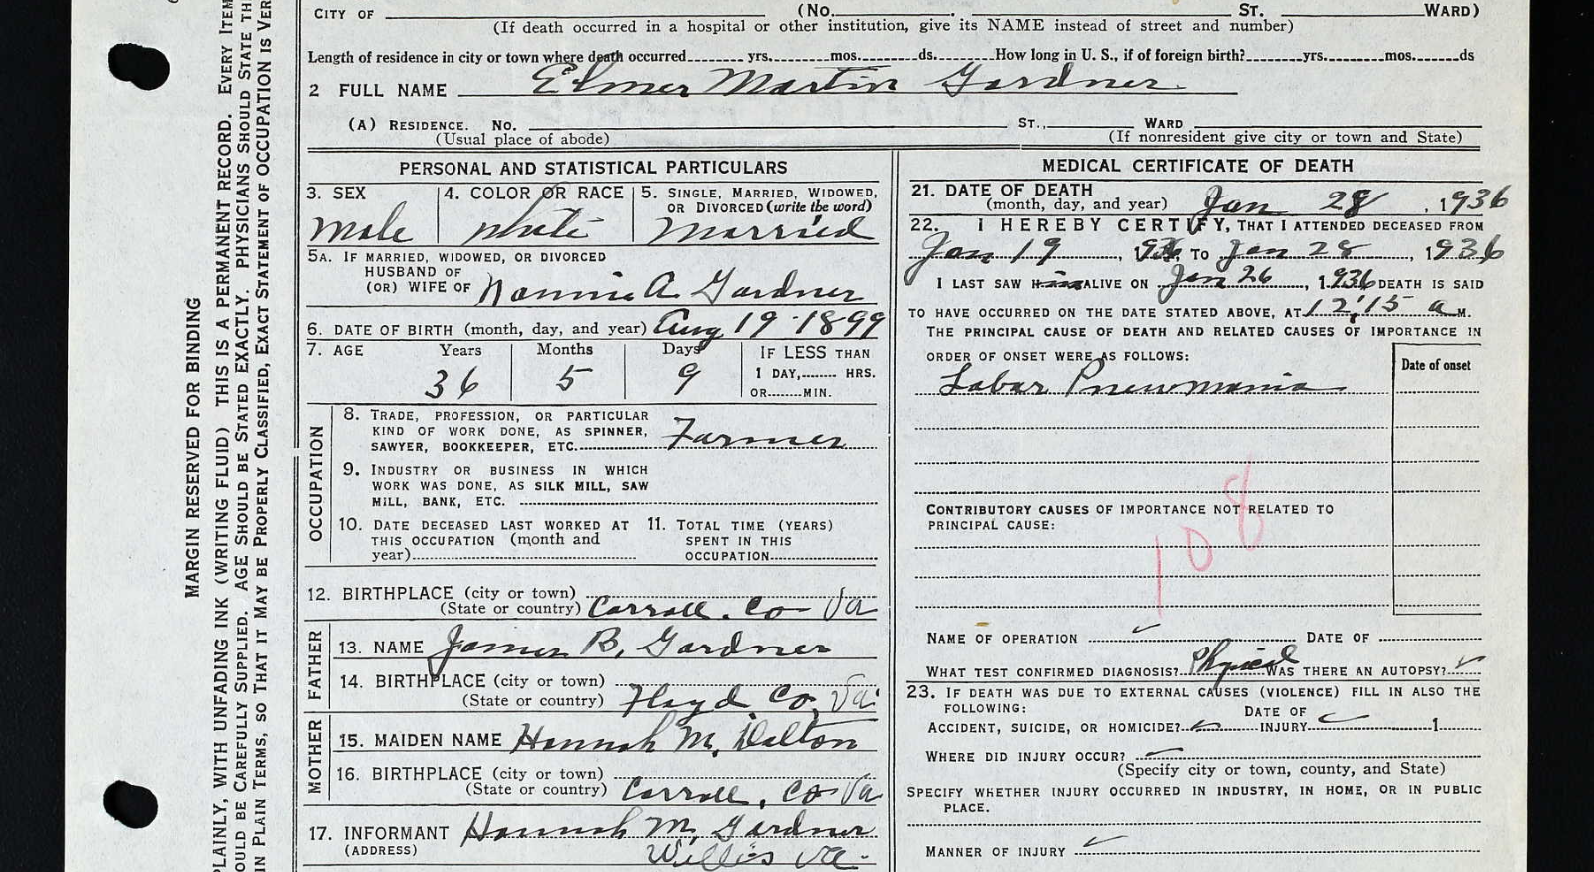 CITY OF (NO. ST. WARD)
(If death occurred in a hospital or other institution, give its NAME instead of street and number)
Length of residence in city or town where death occurred yrs. mos. ds. How long in U. S., if of foreign birth? yrs. mos. ds
2 FULL NAME Elmer Martin Gardner.
(A) RESIDENCE. NO. ST., WARD
(Usual place of abode) (If nonresident give city or town and State)
PERSONAL AND STATISTICAL PARTICULARS
3. SEX 4. COLOR OR RACE 5. SINGLE, MARRIED, WIDOWED,
OR DIVORCED (write the word)
Male white Married
5A. IF MARRIED, WIDOWED, OR DIVORCED
HUSBAND OF
(OR) WIFE OF Nannie A Gardner
6. DATE OF BIRTH (month, day, and year) Aug 19 - 1899
7. AGE Years Months Days IF LESS THAN
1 DAY, HRS.
36 5 9
OR MIN.
OCCUPATION
8. TRADE, PROFESSION, OR PARTICULAR
KIND OF WORK DONE, AS SPINNER,
SAWYER, BOOKKEEPER, ETC. Farmer
9. INDUSTRY OR BUSINESS IN WHICH
WORK WAS DONE, AS SILK MILL, SAW
MILL, BANK, ETC.
10. DATE DECEASED LAST WORKED AT 11. TOTAL TIME (YEARS)
THIS OCCUPATION (month and SPENT IN THIS
year) OCCUPATION
12. BIRTHPLACE (city or town)
(State or country) Carroll. Co Va
FATHER
13. NAME James B. Gardner
14. BIRTHPLACE (city or town)
(State or country) Floyd Co, Va.
MOTHER
15. MAIDEN NAME Hannah M. Dalton
16. BIRTHPLACE (city or town)
(State or country) Carroll, Co Va
17. INFORMANT Hannah M. Gardner
(ADDRESS) Willis Va.
MEDICAL CERTIFICATE OF DEATH
21. DATE OF DEATH
(month, day, and year) Jan 28, 1936
22. I HEREBY CERTIFY, THAT I ATTENDED DECEASED FROM
Jan 19, 1936 TO Jan 28, 1936
I LAST SAW him ALIVE ON Jan 26, 1936 DEATH IS SAID
TO HAVE OCCURRED ON THE DATE STATED ABOVE, AT 12:15 a M.
THE PRINCIPAL CAUSE OF DEATH AND RELATED CAUSES OF IMPORTANCE IN
ORDER OF ONSET WERE AS FOLLOWS:
Date of onset
Labar Pnewmania
108
CONTRIBUTORY CAUSES OF IMPORTANCE NOT RELATED TO
PRINCIPAL CAUSE:
NAME OF OPERATION DATE OF
WHAT TEST CONFIRMED DIAGNOSIS? Physical WAS THERE AN AUTOPSY?
23. IF DEATH WAS DUE TO EXTERNAL CAUSES (VIOLENCE) FILL IN ALSO THE
FOLLOWING:
DATE OF
ACCIDENT, SUICIDE, OR HOMICIDE? INJURY 1
WHERE DID INJURY OCCUR?
(Specify city or town, county, and State)
SPECIFY WHETHER INJURY OCCURRED IN INDUSTRY, IN HOME, OR IN PUBLIC
PLACE.
MANNER OF INJURY
MARGIN RESERVED FOR BINDING
PLAINLY, WITH UNFADING INK (WRITING FLUID) THIS IS A PERMANENT RECORD. EVERY ITEM
OULD BE CAREFULLY SUPPLIED. AGE SHOULD BE STATED EXACTLY. PHYSICIANS SHOULD STATE TH
IN PLAIN TERMS, SO THAT IT MAY BE PROPERLY CLASSIFIED, EXACT STATEMENT OF OCCUPATION IS VER